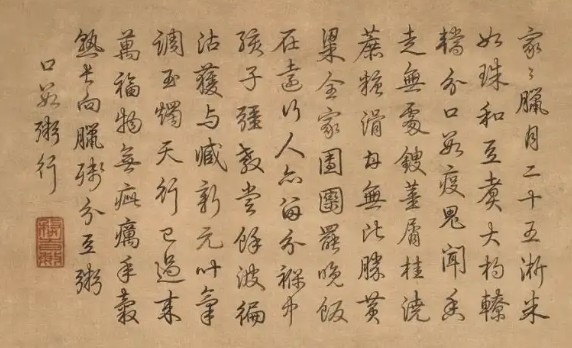 家〻臘月二十五淅米
如珠和豆煮大杓轑
鐺分口數疫鬼聞香
走無處鎪薑屑桂澆
蔗糖滑甘無比勝黃
粱全家團圞罷晚飯
在遠行人亦留分褓中
孩子彊教嘗餘波徧
沾獲與臧新元叶氣
調玉燭天行已過來
萬福物無疵癘年穀
熟長向臘殘分豆粥
口數粥行